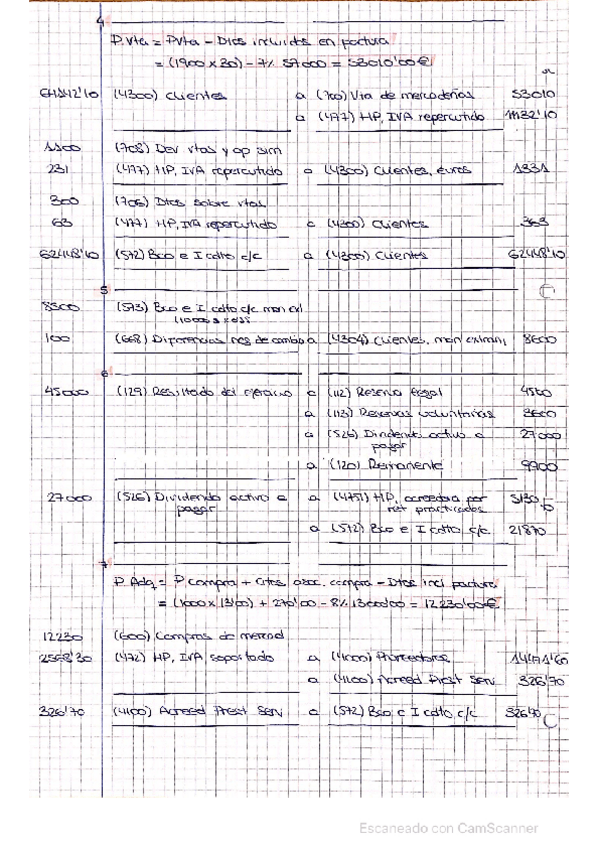 4
P.Vta = PVta - Dtos incluidos en factura
= (1900 x 30) - 7% 57000 = 53010'00€
64142'10 (4300) Clientes a (700) Vta de mercaderías 53010
a (477) HP, IVA repercutido 11132'10
1100 (708) Dev vtas y op sim
231 (477) HP, IVA repercutido a (4300) Clientes, euros 1331
300 (706) Dtos sobre vtas
63 (477) HP, IVA repercutido a (4300) Clientes 363
62448'10 (572) Bco e I cdto c/c a (4300) Clientes 62448'10
5
8500 (573) Bco e I cdto c/c mon ext
100 (668) Diferencias neg de cambio a (4304) Clientes, mon extranj 8600
6
45000 (129) Resultado del ejercicio a (112) Reserva legal 4500
a (113) Reservas voluntarias 3600
a (526) Dividendo activo a
pagar 27000
a (120) Remanente 9900
27000 (526) Dividendo activo a a (4751) HP, acreedora por 5130
pagar ret practicadas
a (572) Bco e I cdto c/c 21870
7
P Adq = P compra + Gtos asoc. compra - Dtos incl factura
= (1000 x 13'00) + 270'00 - 8% 13000'00 = 12230'00€
12230 (600) Compras de mercad
2568'30 (472) HP, IVA, soportado a (4000) Proveedores 14471'60
a (4100) Acreed Prest Serv 326'70
326'70 (4100) Acreed Prest Serv a (572) Bco e I cdto c/c 326'70
Escaneado con CamScanner